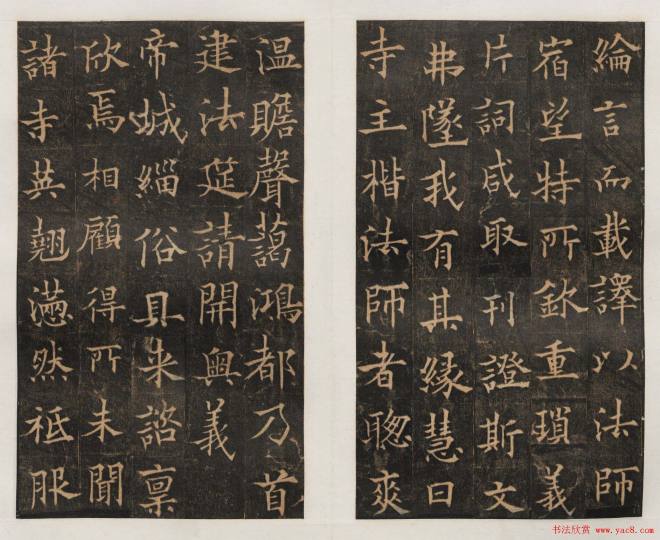 綸言而載譯以法師
宿望特所欽重瑣義
片詞咸取刊證斯文
弗墜我有其緣慧日
寺主楷法師者聦爽
温贍聲藹鴻都乃首
建法筵請開奥義
帝城緇俗具来諮稟
欣焉相顧得所未聞
諸寺英翹懣然祗服
书法欣赏 www.yac8.com